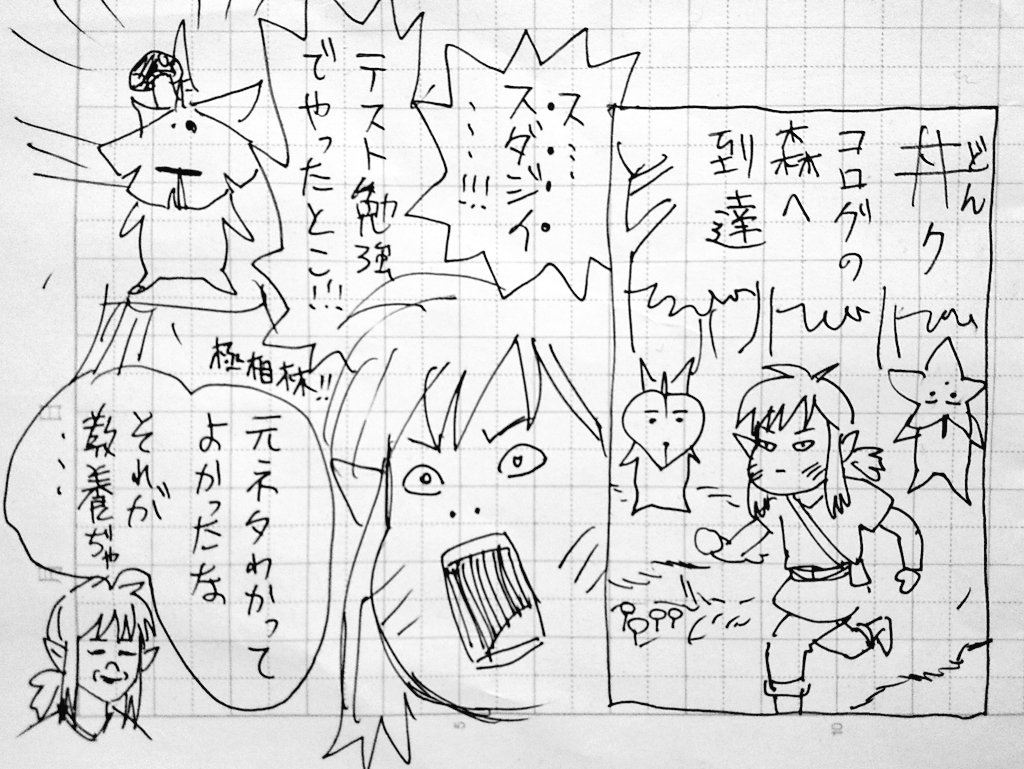 丼ク
どん
コログの
森へ
到達
ス…
スダジイ
……!!!
テスト勉強
でやったとこ!!!
極相林!!
元ネタわかって
よかったな
それが
教養ぢゃ
……
5
10